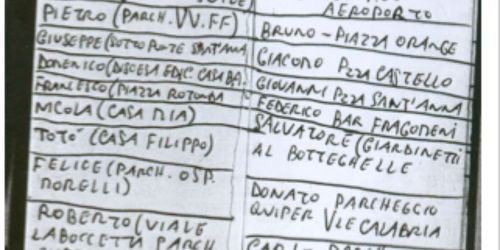 PIETRO (PARCH. VV.FF)
GIUSEPPE (SOTTO PONTE SANT'ANNA
DOMENICO (DISCESA EDIC. CASABA
FRANCESCO (PIAZZA ROTONDA
NICOLA (CASA MIA)
TOTO' (CASA FILIPPO)
FELICE (PARCH. OSP.
MORELLI)
ROBERTO (VIALE
LABOCCETTA PARCH
AEROPORTO
BRUNO - PIAZZA ORANGE
GIACOMO PZZA CASTELLO
GIOVANNI PZZA SANT'ANNA
FEDERICO BAR FRAGOMENI
SALVATORE (GIARDINETTI
AL BOTTEGHELLE
DONATO PARCHEGGIO
QUIPER VLE CALABRIA